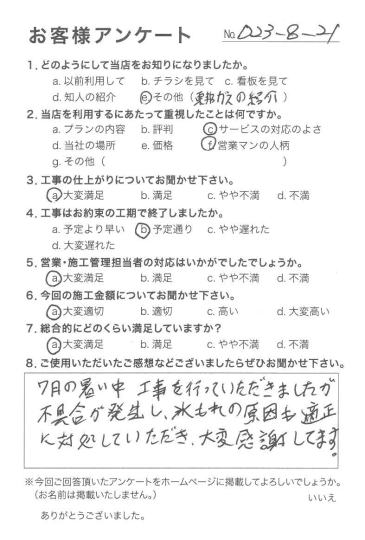 お客様アンケート No. D23-8-21
1. どのようにして当店をお知りになりましたか。
a. 以前利用して b. チラシを見て c. 看板を見て
d. 知人の紹介 e. その他（東邦ガスの紹介）
2. 当店を利用するにあたって重視したことは何ですか。
a. プランの内容 b. 評判 c. サービスの対応のよさ
d. 当社の場所 e. 価格 f. 営業マンの人柄
g. その他（ ）
3. 工事の仕上がりについてお聞かせ下さい。
a. 大変満足 b. 満足 c. やや不満 d. 不満
4. 工事はお約束の工期で終了しましたか。
a. 予定より早い b. 予定通り c. やや遅れた
d. 大変遅れた
5. 営業・施工管理担当者の対応はいかがでしたでしょうか。
a. 大変満足 b. 満足 c. やや不満 d. 不満
6. 今回の施工金額についてお聞かせ下さい。
a. 大変適切 b. 適切 c. 高い d. 大変高い
7. 総合的にどのくらい満足していますか？
a. 大変満足 b. 満足 c. やや不満 d. 不満
8. ご使用いただいたご感想などございましたらぜひお聞かせ下さい。
7月の暑い中 工事を行っていただきましたが
不具合が発生し、水もれの原因も適正
に対処していただき、大変感謝してます。
※今回ご回答頂いたアンケートをホームページに掲載してよろしいでしょうか。
（お名前は掲載いたしません。） いいえ
ありがとうございました。